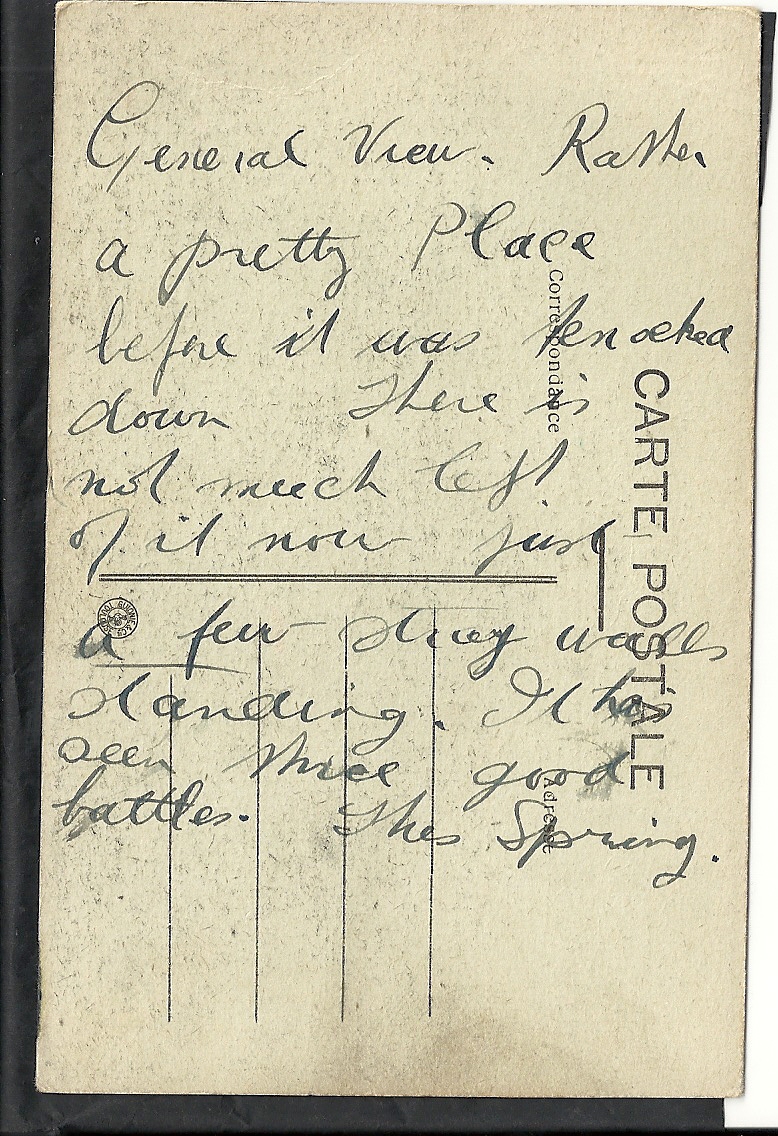 General View. Rather
a pretty Place
before it was kenocked
down There is
not much left
of it now just
a few stray walls
standing. It has
seen three good
battles. This Spring.
CARTE POSTALE
Correspondance
Adresse